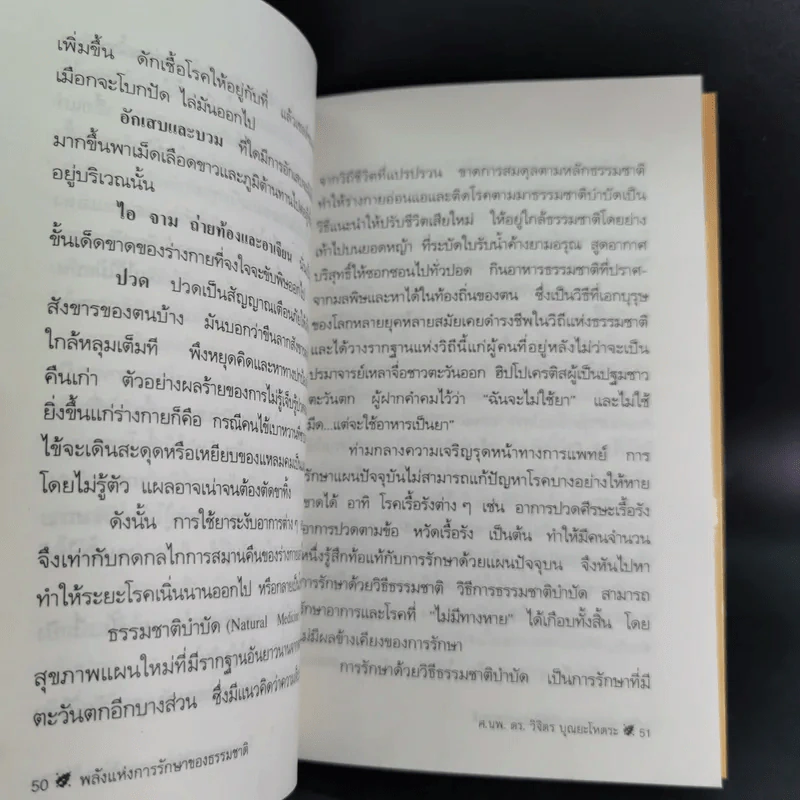 เพิ่มขึ้น ดักเชื้อโรคให้อยู่กับที่
เมือกจะโบกปัด ไล่มันออกไป
อักเสบและบวม ที่ใดมีการอักเสบ
มากขึ้นพาเม็ดเลือดขาวและภูมิต้านทาน
อยู่บริเวณนั้น
ไอ จาม ถ่ายท้องและอาเจียน
ขั้นเด็ดขาดของร่างกายที่จงใจจะขับพิษออก
ปวด ปวดเป็นสัญญาณเตือนภัย
สังขารของตนบ้าง มันบอกว่าขืนลากสังขาร
ใกล้หลุมเต็มที พึงหยุดคิดและหาทาง
คืนเก่า ตัวอย่างผลร้ายของการไม่รู้เจ็บ
ยิ่งขึ้นแก่ร่างกายก็คือ กรณีคนไข้เบาหวาน
ไข้จะเดินสะดุดหรือเหยียบของแหลมคม
โดยไม่รู้ตัว แผลอาจเน่าจนต้องตัดขาทิ้ง
ดังนั้น การใช้ยาระงับอาการต่างๆ
จึงเท่ากับกดกลไกการสมานคืนของร่างกาย
ทำให้ระยะโรคเนิ่นนานออกไป หรือกลาย
ธรรมชาติบำบัด (Natural Medicine
สุขภาพแผนใหม่ที่มีรากฐานอันยาวนาน
ตะวันตกอีกบางส่วน ซึ่งมีแนวคิดว่าความ
50 พลังแห่งการรักษาของธรรมชาติ
จากวิถีชีวิตที่แปรปรวน ขาดการสมดุลตามหลักธรรมชาติ
ทำให้ร่างกายอ่อนแอและติดโรคตามมาธรรมชาติบำบัดเป็น
วิธีแนะนำให้ปรับชีวิตเสียใหม่ ให้อยู่ใกล้ธรรมชาติโดยย่าง
เท้าไปบนยอดหญ้า ที่ระบัดใบรับน้ำค้างยามอรุณ สูดอากาศ
บริสุทธิ์ให้ซอกซอนไปทั่วปอด กินอาหารธรรมชาติที่ปราศ-
จากมลพิษและหาได้ในท้องถิ่นของตน ซึ่งเป็นวิธีที่เอกบุรุษ
ของโลกหลายยุคหลายสมัยเคยดำรงชีพในวิถีแห่งธรรมชาติ
และได้วางรากฐานแห่งวิถีนี้แก่ผู้คนที่อยู่หลังไม่ว่าจะเป็น
ปรมาจารย์เหลาจื่อชาวตะวันออก ฮิปโปเครติสผู้เป็นปฐมชาว
ตะวันตก ผู้ฝากคำคมไว้ว่า "ฉันจะไม่ใช้ยา" และไม่ใช้
มีด...แต่จะใช้อาหารเป็นยา"
ท่ามกลางความเจริญรุดหน้าทางการแพทย์ การ
รักษาแผนปัจจุบันไม่สามารถแก้ปัญหาโรคบางอย่างให้หาย
ขาดได้ อาทิ โรคเรื้อรังต่างๆ เช่น อาการปวดศีรษะเรื้อรัง
อาการปวดตามข้อ หวัดเรื้อรัง เป็นต้น ทำให้มีคนจำนวน
หนึ่งรู้สึกท้อแท้กับการรักษาด้วยแผนปัจจุบน จึงหันไปหา
การรักษาด้วยวิธีธรรมชาติ วิธีการธรรมชาติบำบัด สามารถ
รักษาอาการและโรคที่ "ไม่มีทางหาย" ได้เกือบทั้งสิ้น โดย
ไม่มีผลข้างเคียงของการรักษา
การรักษาด้วยวิธีธรรมชาติบำบัด เป็นการรักษาที่มี
ศ.นพ. ดร. วิจิตร บุณยะโหตระ 51